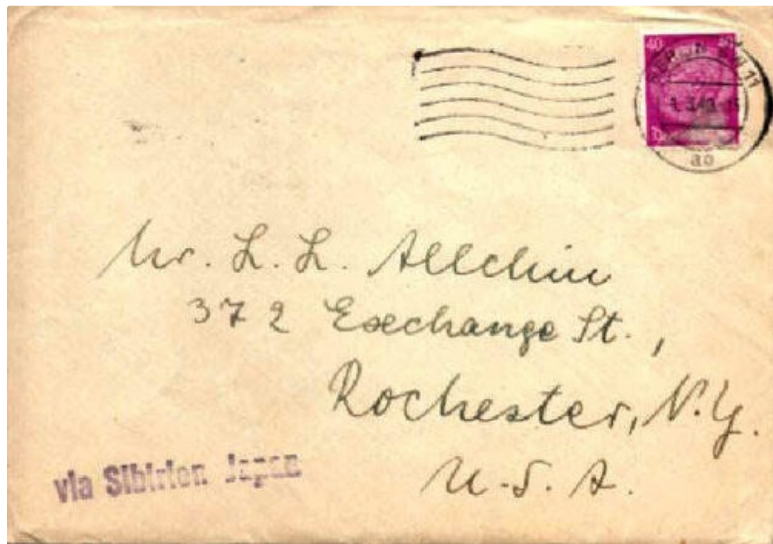 40
BERLIN SW 11
ao
Mr. L. L. Allchin
372 Exechange St.,
Rochester, N.Y.
U.S.A.
via Sibirien Japan